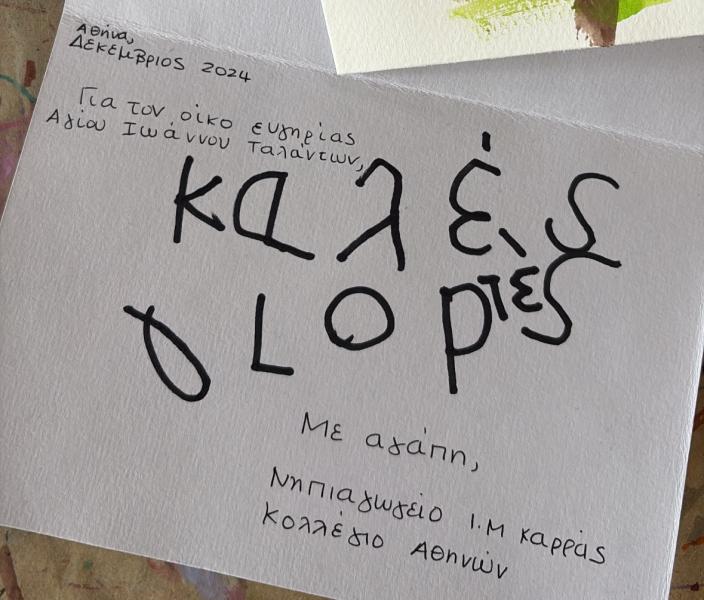 Αθήνα,
ΔΕΚΕΜΒΡΙΟΣ 2024
Για τον οίκο ευγηρίας
Αγίου Ιωάννου Ταλάντων,
καλές
γιορτές
Με αγάπη,
Νηπιαγωγείο Ι.Μ Καρράς
Κολλέγιο Αθηνών